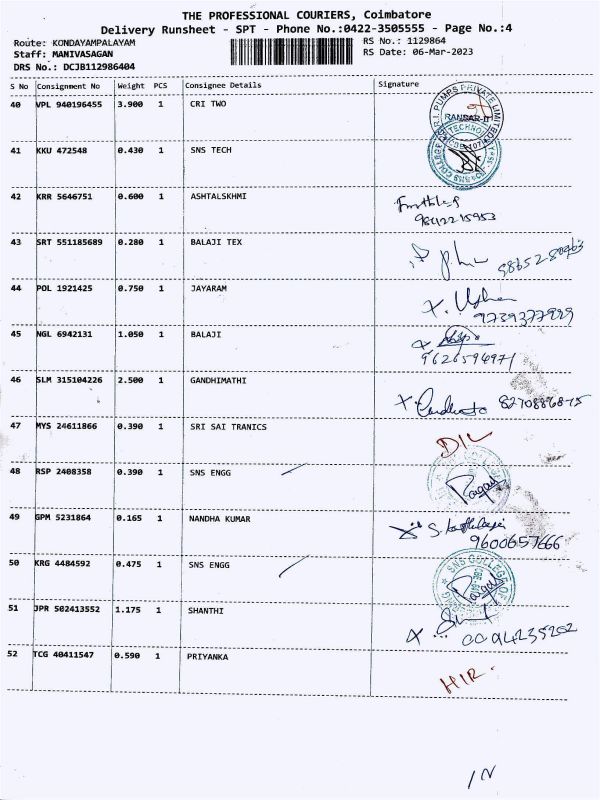 THE PROFESSIONAL COURIERS, Coimbatore
Delivery Runsheet - SPT - Phone No.:0422-3505555 - Page No.:4
Route: KONDAYAMPALAYAM
RS No.: 1129864
Staff: MANIVASAGAN
RS Date: 06-Mar-2023
DRS No.: DCJB112986404
S No Consignment No Weight PCS Consignee Details Signature
40 VPL 940196455 3.900 1 CRI TWO
41 KKU 472548 0.430 1 SNS TECH
42 KRR 5646751 0.600 1 ASHTALSKHMI
9842215953
43 SRT 551185689 0.280 1 BALAJI TEX
44 POL 1921425 0.750 1 JAYARAM
9739377929
45 NGL 6942131 1.050 1 BALAJI
9626594971
46 SLM 315104226 2.500 1 GANDHIMATHI
8270886875
47 MYS 24611866 0.390 1 SRI SAI TRANICS
48 RSP 2408358 0.390 1 SNS ENGG
49 GPM 5231864 0.165 1 NANDHA KUMAR
9600657666
50 KRG 4484592 0.475 1 SNS ENGG
SNS COLLEGE OF
51 JPR 502413552 1.175 1 SHANTHI
52 TCG 40411547 0.590 1 PRIYANKA